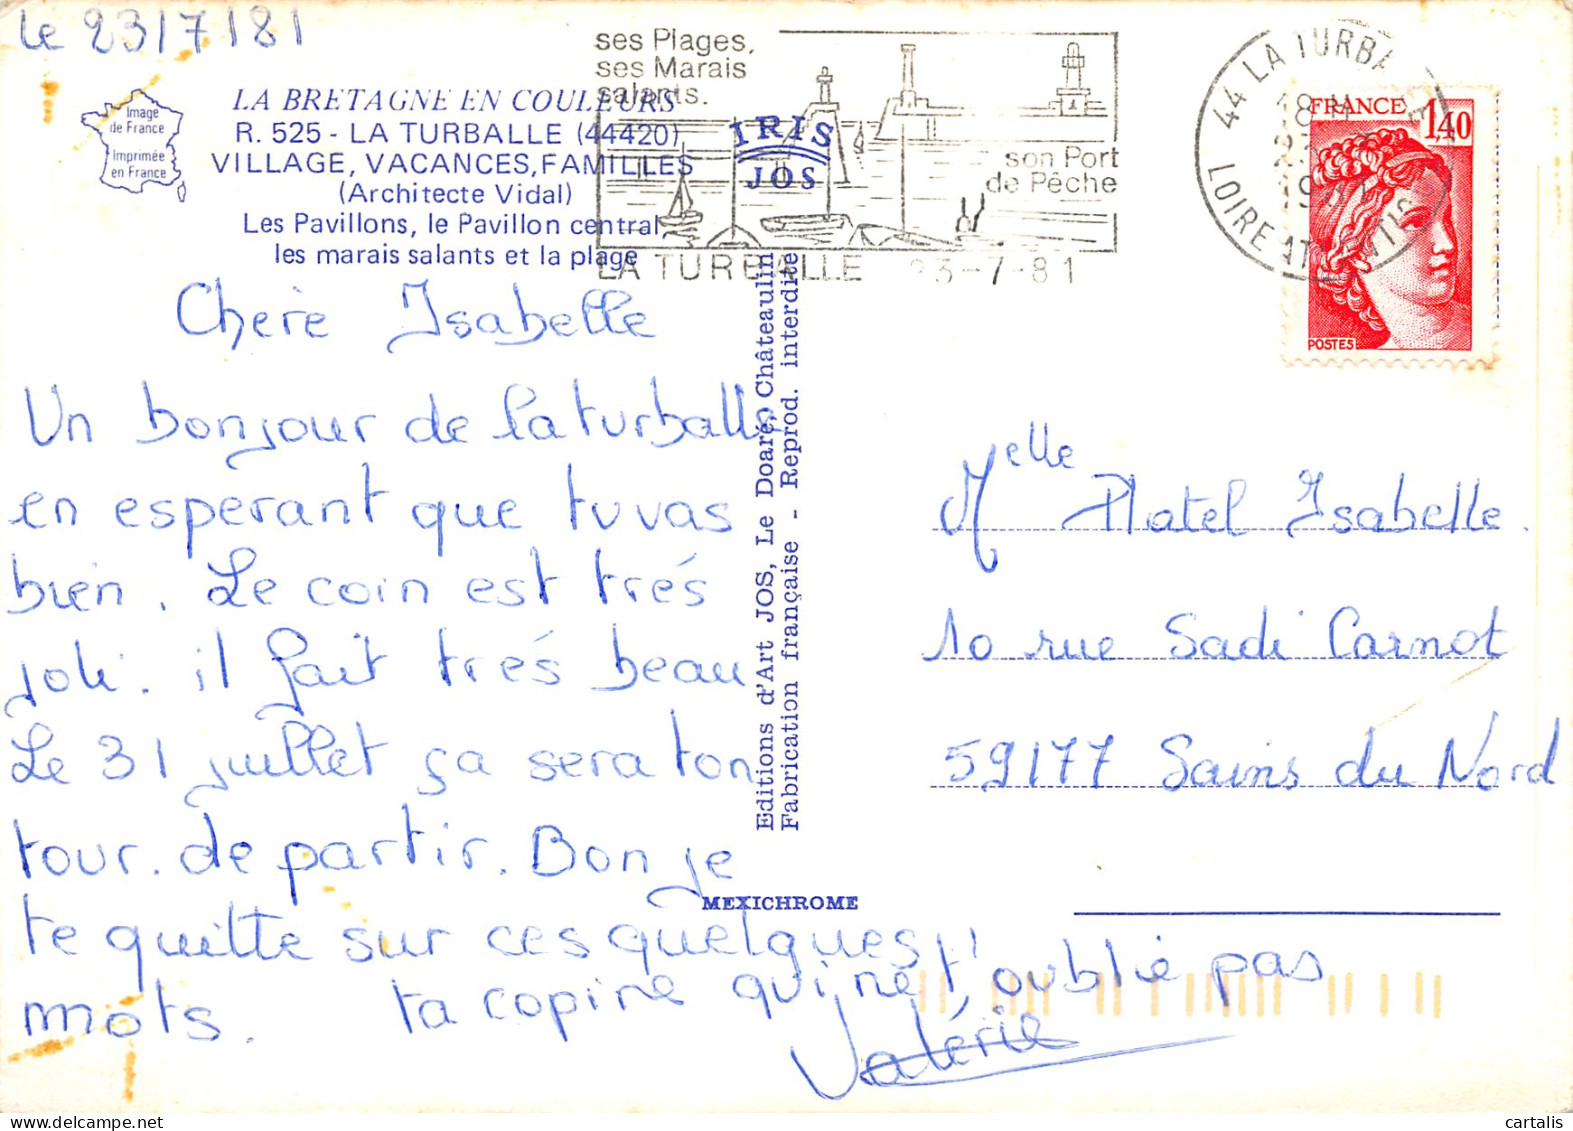 le 23/7/81
Image
de France
Imprimée
en France
LA BRETAGNE EN COULEURS
R. 525 - LA TURBALLE (44420)
VILLAGE, VACANCES, FAMILLES
(Architecte Vidal)
Les Pavillons, le Pavillon central,
les marais salants et la plage
ses Plages,
ses Marais
salants.
son Port
de Pêche
LA TURBALLE 23-7-81
IRIS
JOS
44 LA TURBALLE
18 H
LOIRE ATLANTIQUE
FRANCE 1,40
POSTES
Chère Isabelle
Un bonjour de la turballe
en esperant que tu vas
bien. Le coin est trés
joli. il fait trés beau
Le 31 juillet ça sera ton
tour. de partir. Bon je
te quitte sur ces quelques
mots. ta copine qui ne t'oublie pas
Valérie
Editions d'Art JOS, Le Doaré, Châteaulin
Fabrication française - Reprod. interdite
MEXICHROME
Melle Platel Isabelle.
10 rue Sadi Carnot
59177 Sains du Nord
cartalis.com